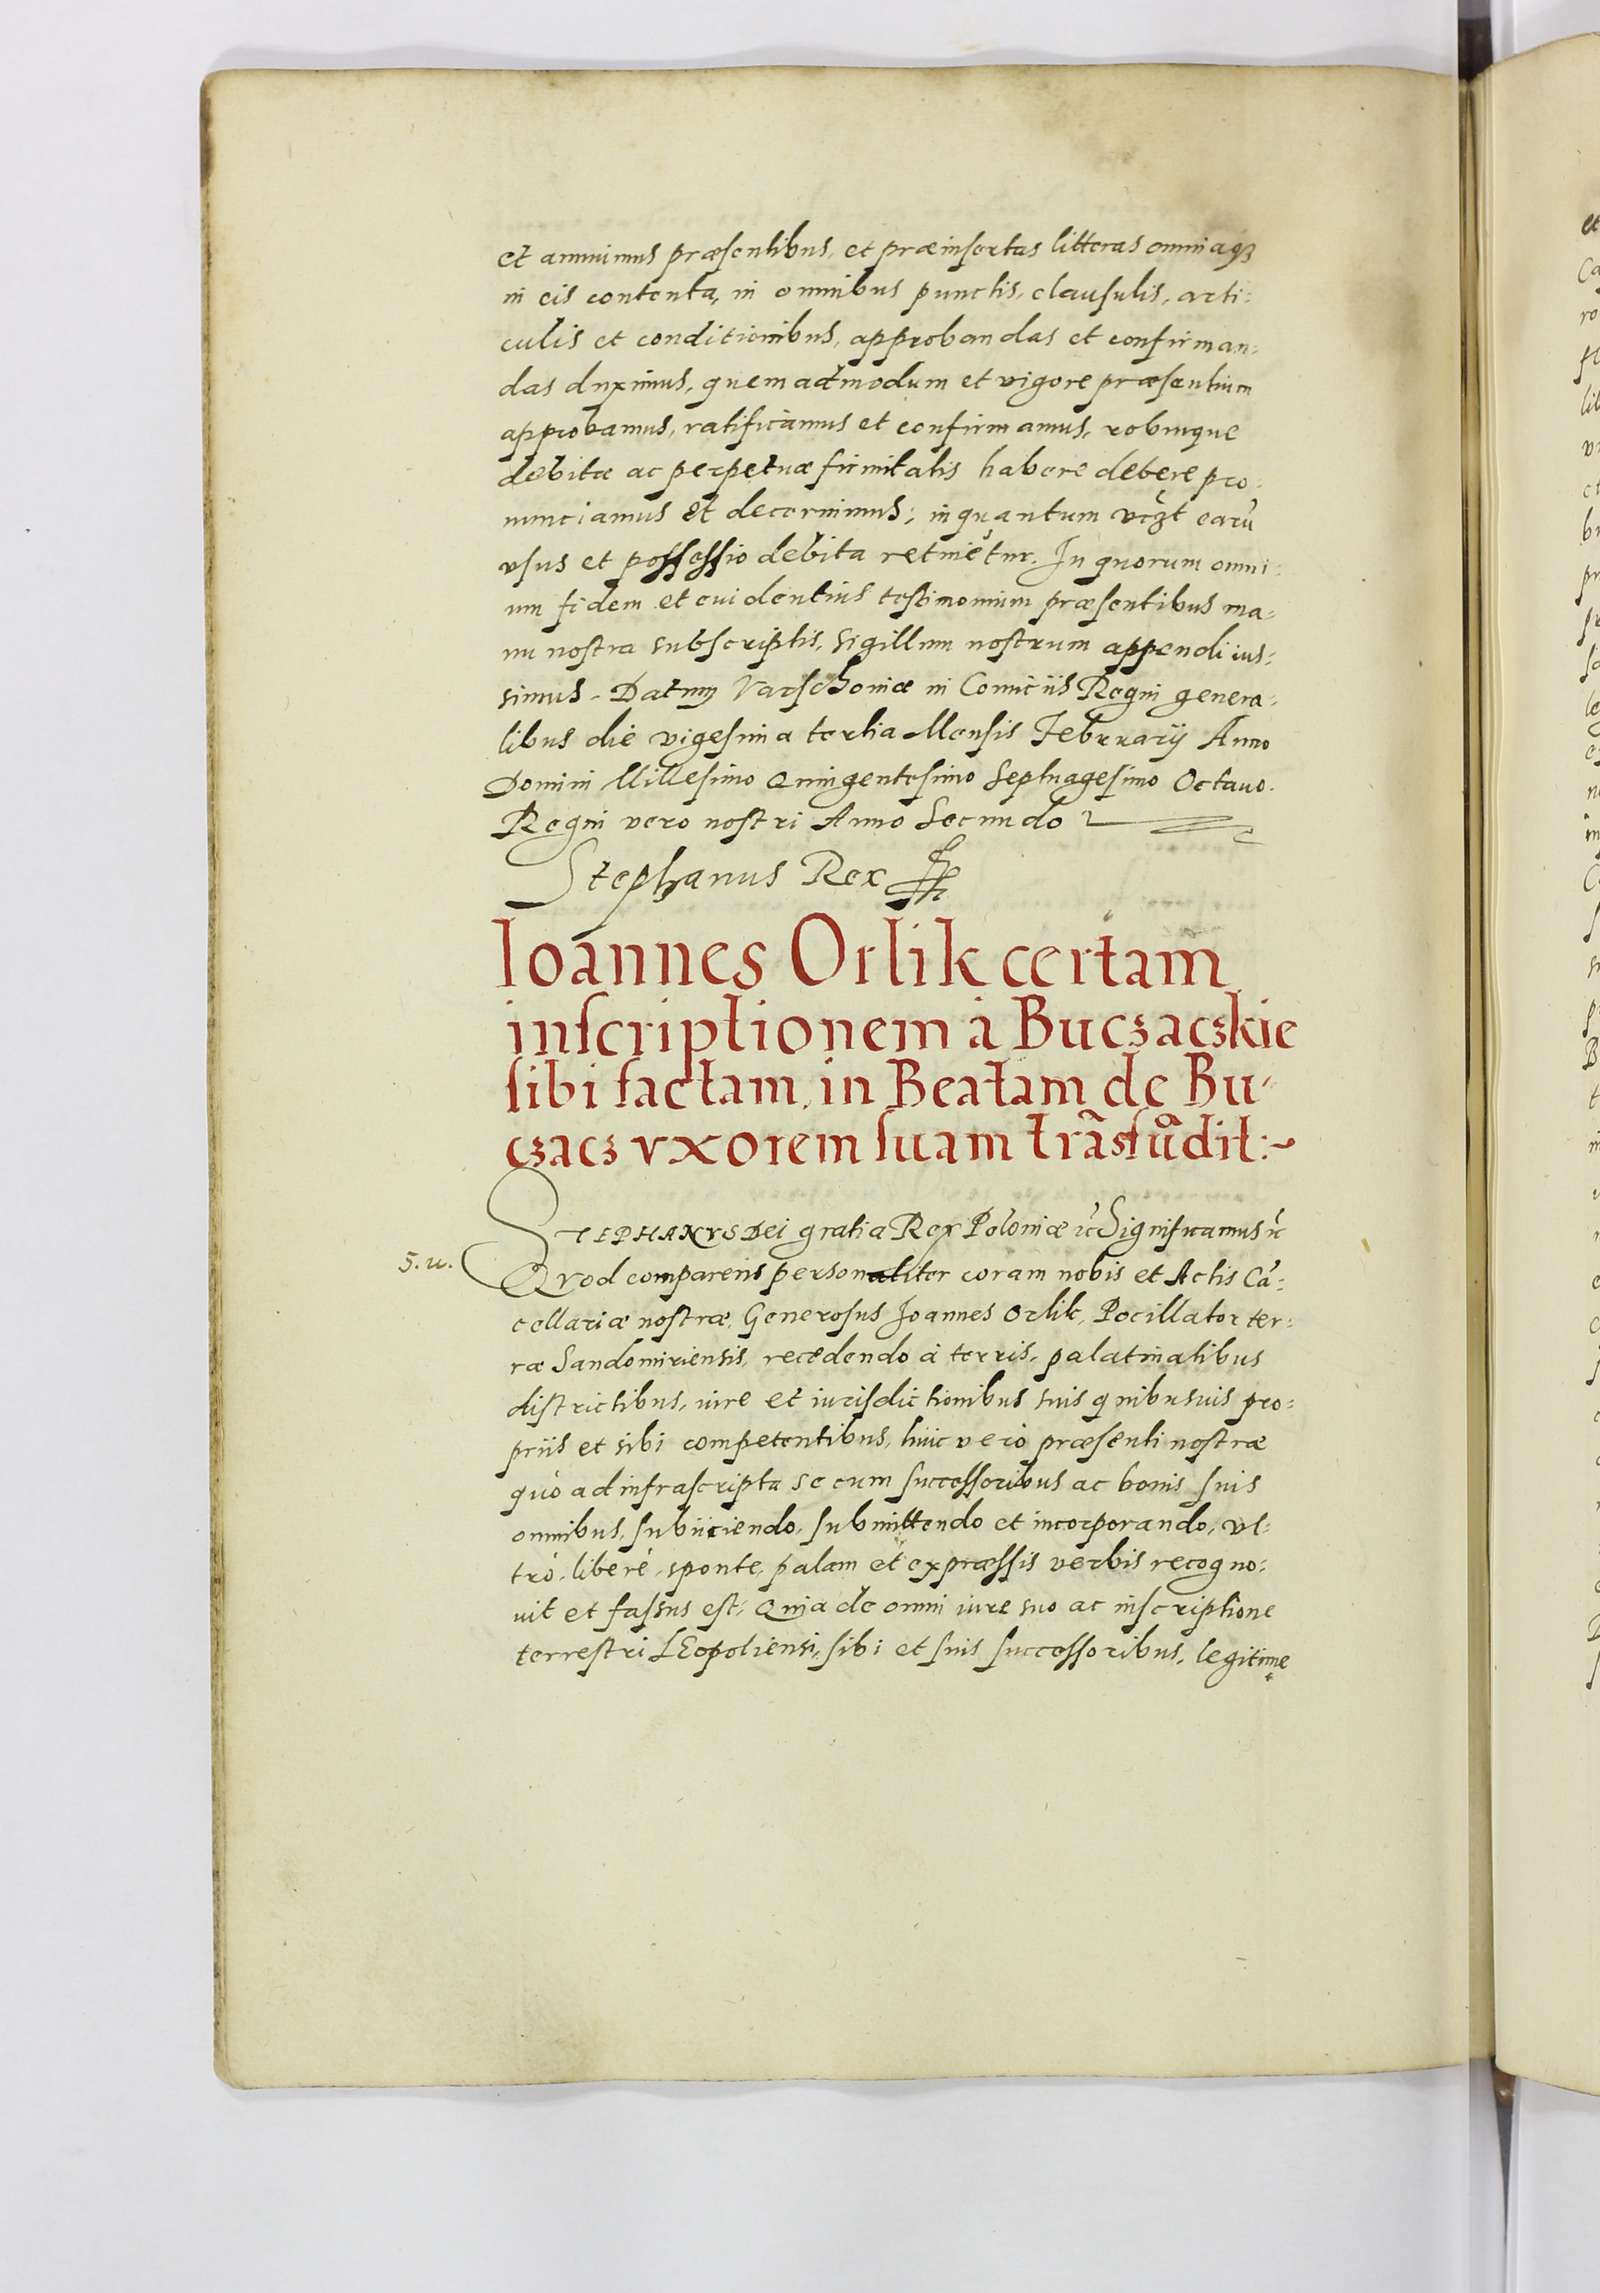 et annuimus præsentibus, et præinsertas litteras omniaqꝫ
in eis contenta, in omnibus punctis, clausulis, arti:
culis et conditionibus, approbandas et confirman:
das duximus, quemadmodum et vigore præsentium
approbamus, ratificamus et confirmamus, roburque
debitæ ac perpetuæ firmitatis habere debere pro:
nunciamus et decernimus; in quantum vczt earũ
vsus et possessio debita retinetur. In quorum omni:
um fidem et euidentius testimonium præsentibus ma:
nu nostra subscriptis, sigillum nostrum appendi ius:
simus. Datum Varschoviæ in Comitiis Regni genera:
libus die vigesima tertia Mensis Februarij Anno
Domini Millesimo Quingentesimo Septuagesimo Octauo.
Regni vero nostri Anno Secundo
Stephanus Rex
Ioannes Orlik certam
inscriptionem à Buczaczkie
sibi factam, in Beatam de Bu-
czacz vxorem suam trãsfũdit:~
STEPHANVS Dei gratia Rex Poloniæ ec̃ Significamus ec̃
5. u.
Quod comparens personaliter coram nobis et Actis Cã:
cellariæ nostræ, Generosus Joannes Orlik, Pocillator ter:
ræ Sandomiriensis, recedendo à terris, palatinatibus
districtibus, iure et iurisdictionibus suis quibusuis pro:
priis et sibi competentibus, huic verò præsenti nostræ
quò ad infrascripta se cum successoribus ac bonis suis
omnibus, subiiciendo, submittendo et incorporando, vl:
trò, liberè, sponte, palam et expræssis verbis recogno:
uit et fassus est, Quia de omni iure suo ac inscriptione
terrestri LEopoliensi, sibi et suis successoribus, legitime